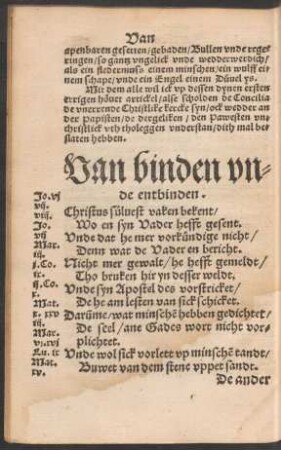 Van
apenbaren gesetten/gebaden/Bullen vnde rege
ringen/so gantz vngelick vnde wedderwerdich/
als ein fledermuß einem minschen/ein wulff ei
nem schape/vnde ein Engel einem Düuel ys.
Mit dem alle wil ick vp dessen dynen ersten
errigen höuet artickel/alse scholden de Concilia
de vnerrende Christlike kercke syn/ock wedder an
der Papisten/de dergeliken/den Pawesten vn-
christlick vth tholeggen vnderstan/dith mal be
slaten hebben.
Van binden vn-
de entbinden.
Jo.vj
vij.
viij.
Jo.
vij
Mar.
iij.
j.Co.
ix
ij.Co.
x.
Mat.
x. xxv
iij.
Mar.
vj.xvj
Lu. ix
Mat.
xv.
Christus sülvest vaken bekent/
Wo en syn Vader hefft gesent.
Vnde dat he mer vorkündige nicht/
Denn wat de Vader en bericht.
Nicht mer gewalt/he hefft gemeldet/
Tho bruken hir yn desser weldt.
Vnde syn Apostel des vorstricket/
De he am lesten van sick schicket.
Darüme/wat minschē hebbē gedichtet/
De seel/ane Gades wort nicht vor-
plichtet.
Vnde wol sick vorlett vp minschē tandt/
Buwet van dem stene vppet sandt.
De ander